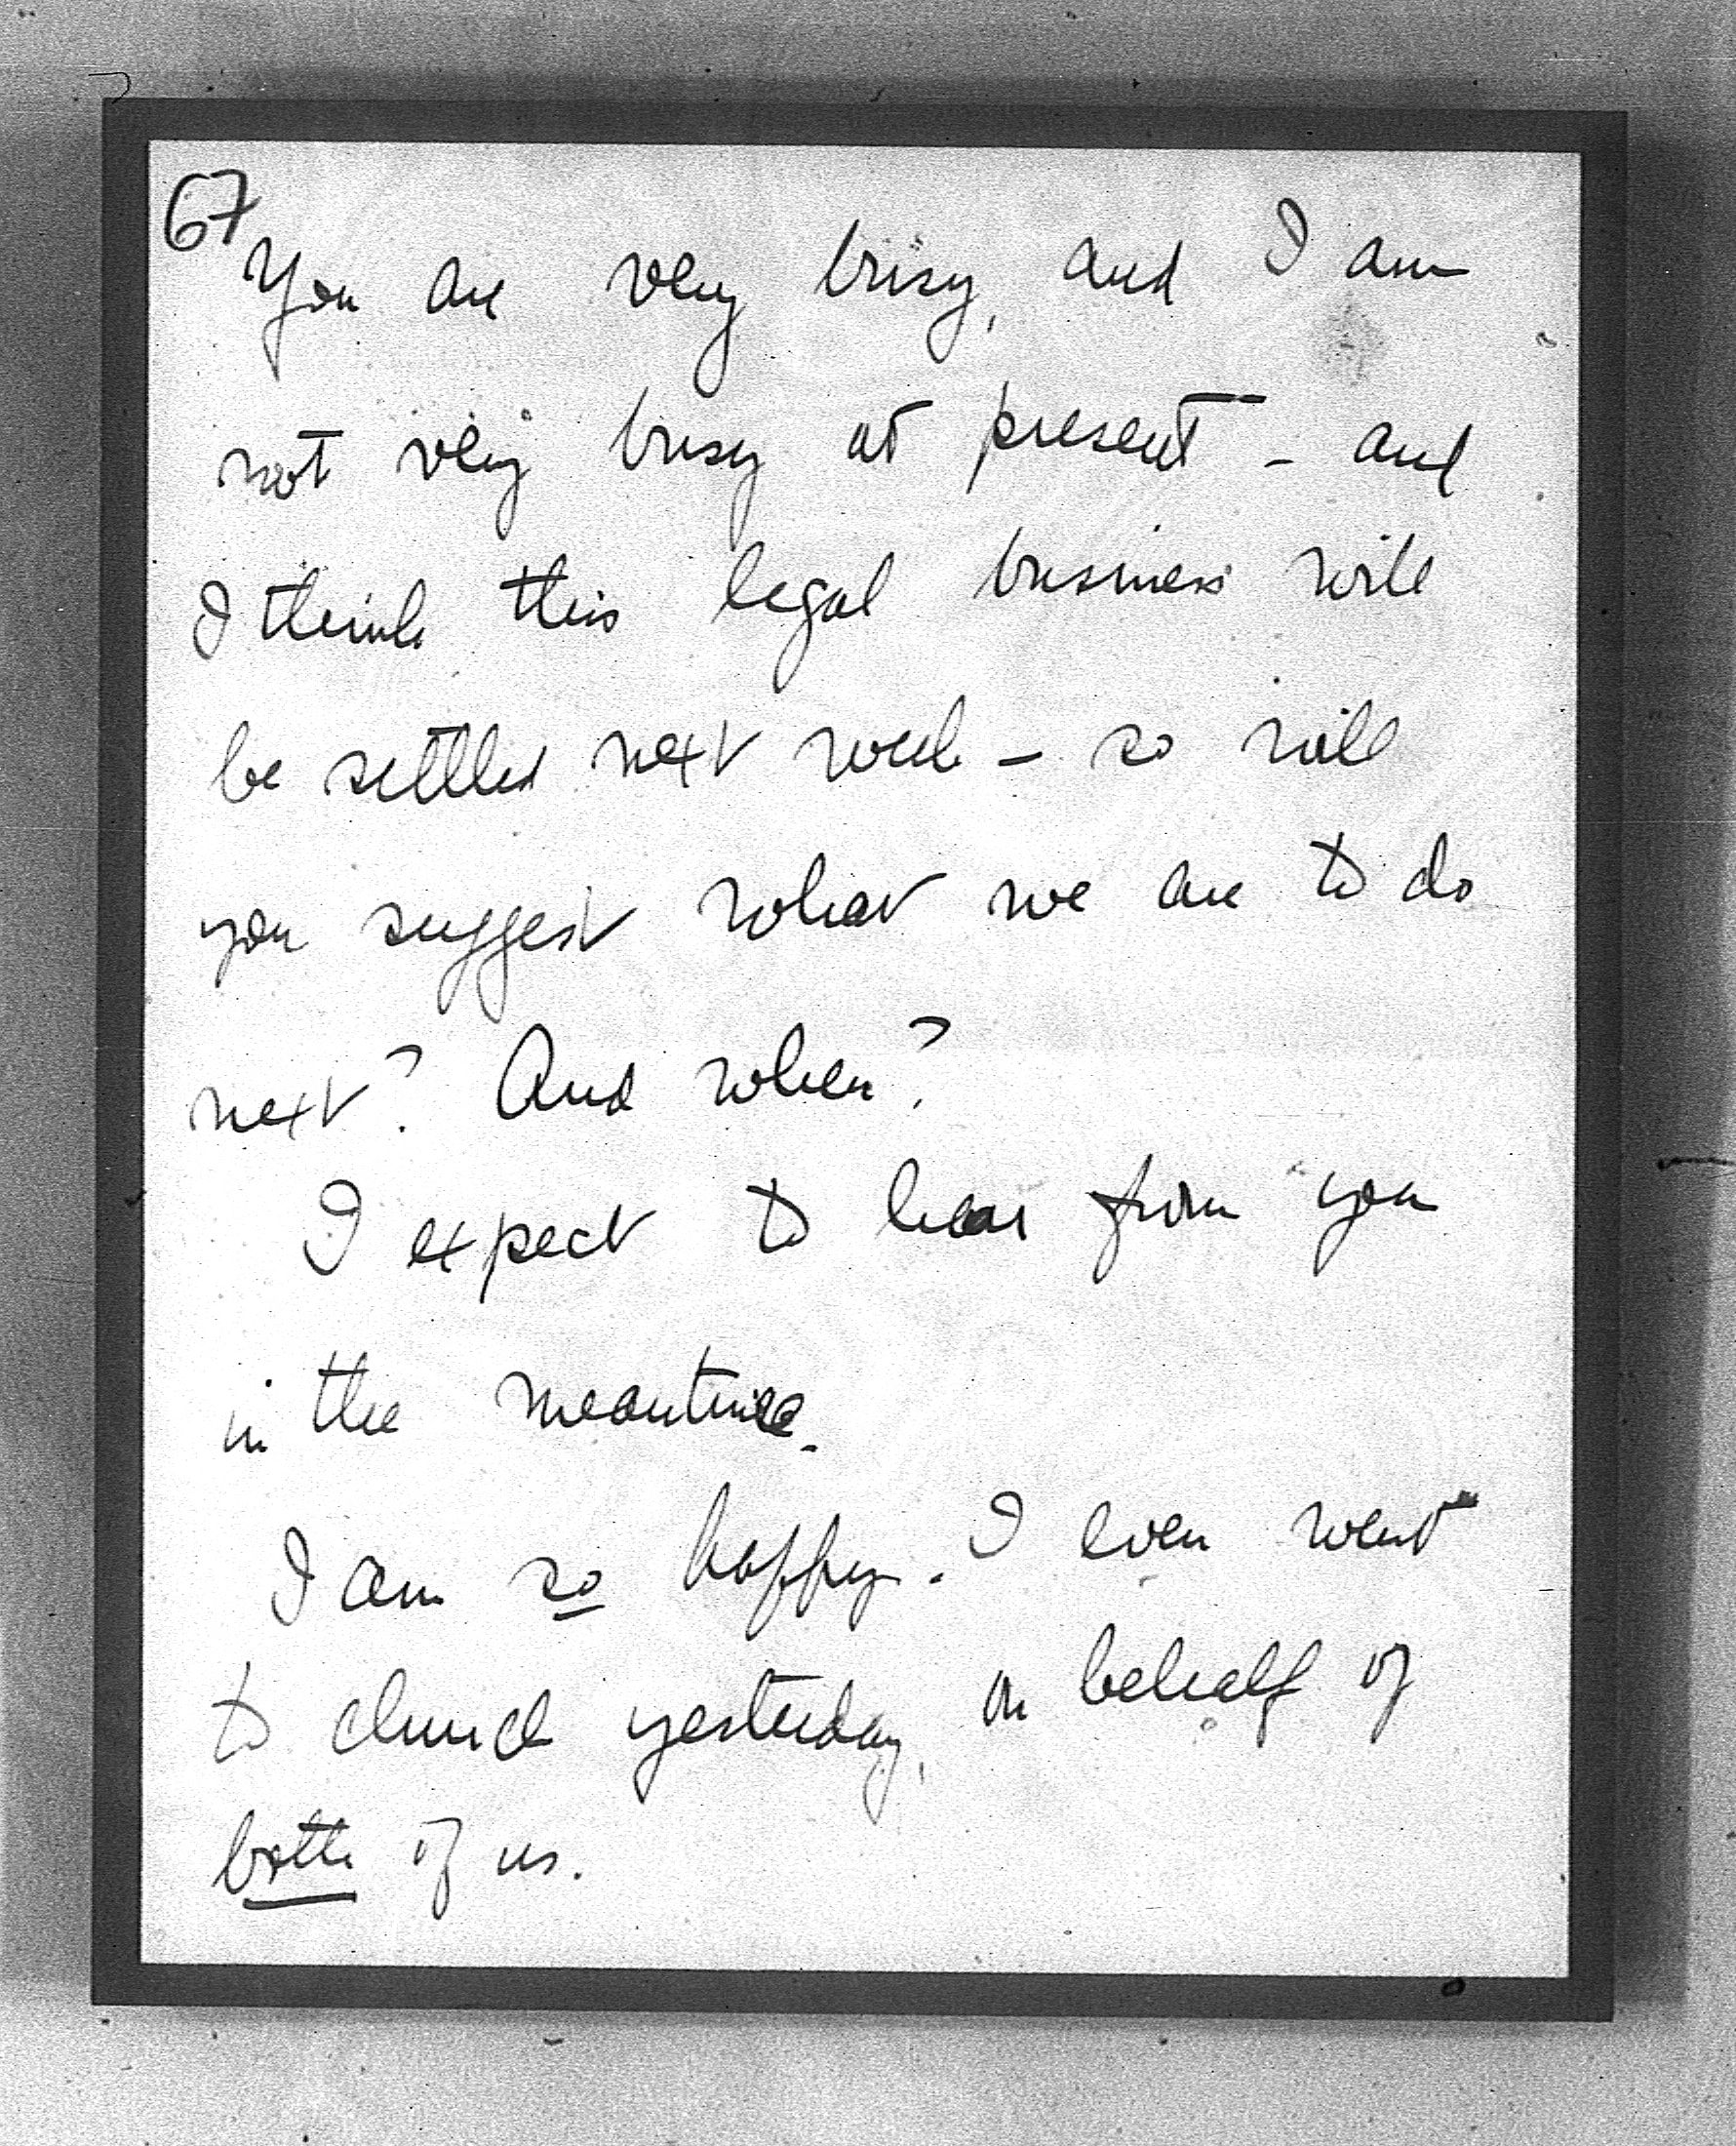 67
You are very busy, and I am
not very busy at present - and
I think this legal business will
be settled next week - so will
you suggest what we are to do
next? And when?
I expect to hear from you
in the meantime.
I am so happy. I even went
to church yesterday, on behalf of
both of us.